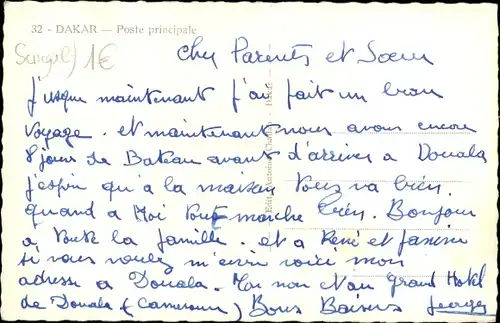 32 - DAKAR — Poste principale
Senegal) 1€
Cher Parents et Sœur
J'usque maintenant j'au fait un bon
voyage. et maintenant nous avons encore
8 jours de Bateau avant d'arriver a Douala
j'espir qu'a la maison tous va bien.
quand a Moi tout marche bien. Bonjour
a toute la famille. et a René et Janine
si vous voulez m'ecrir voici mon
adresse a Douala. Mon nom et au Grand Hotel
de Douala (Cameroun) Bons Baisers Georges